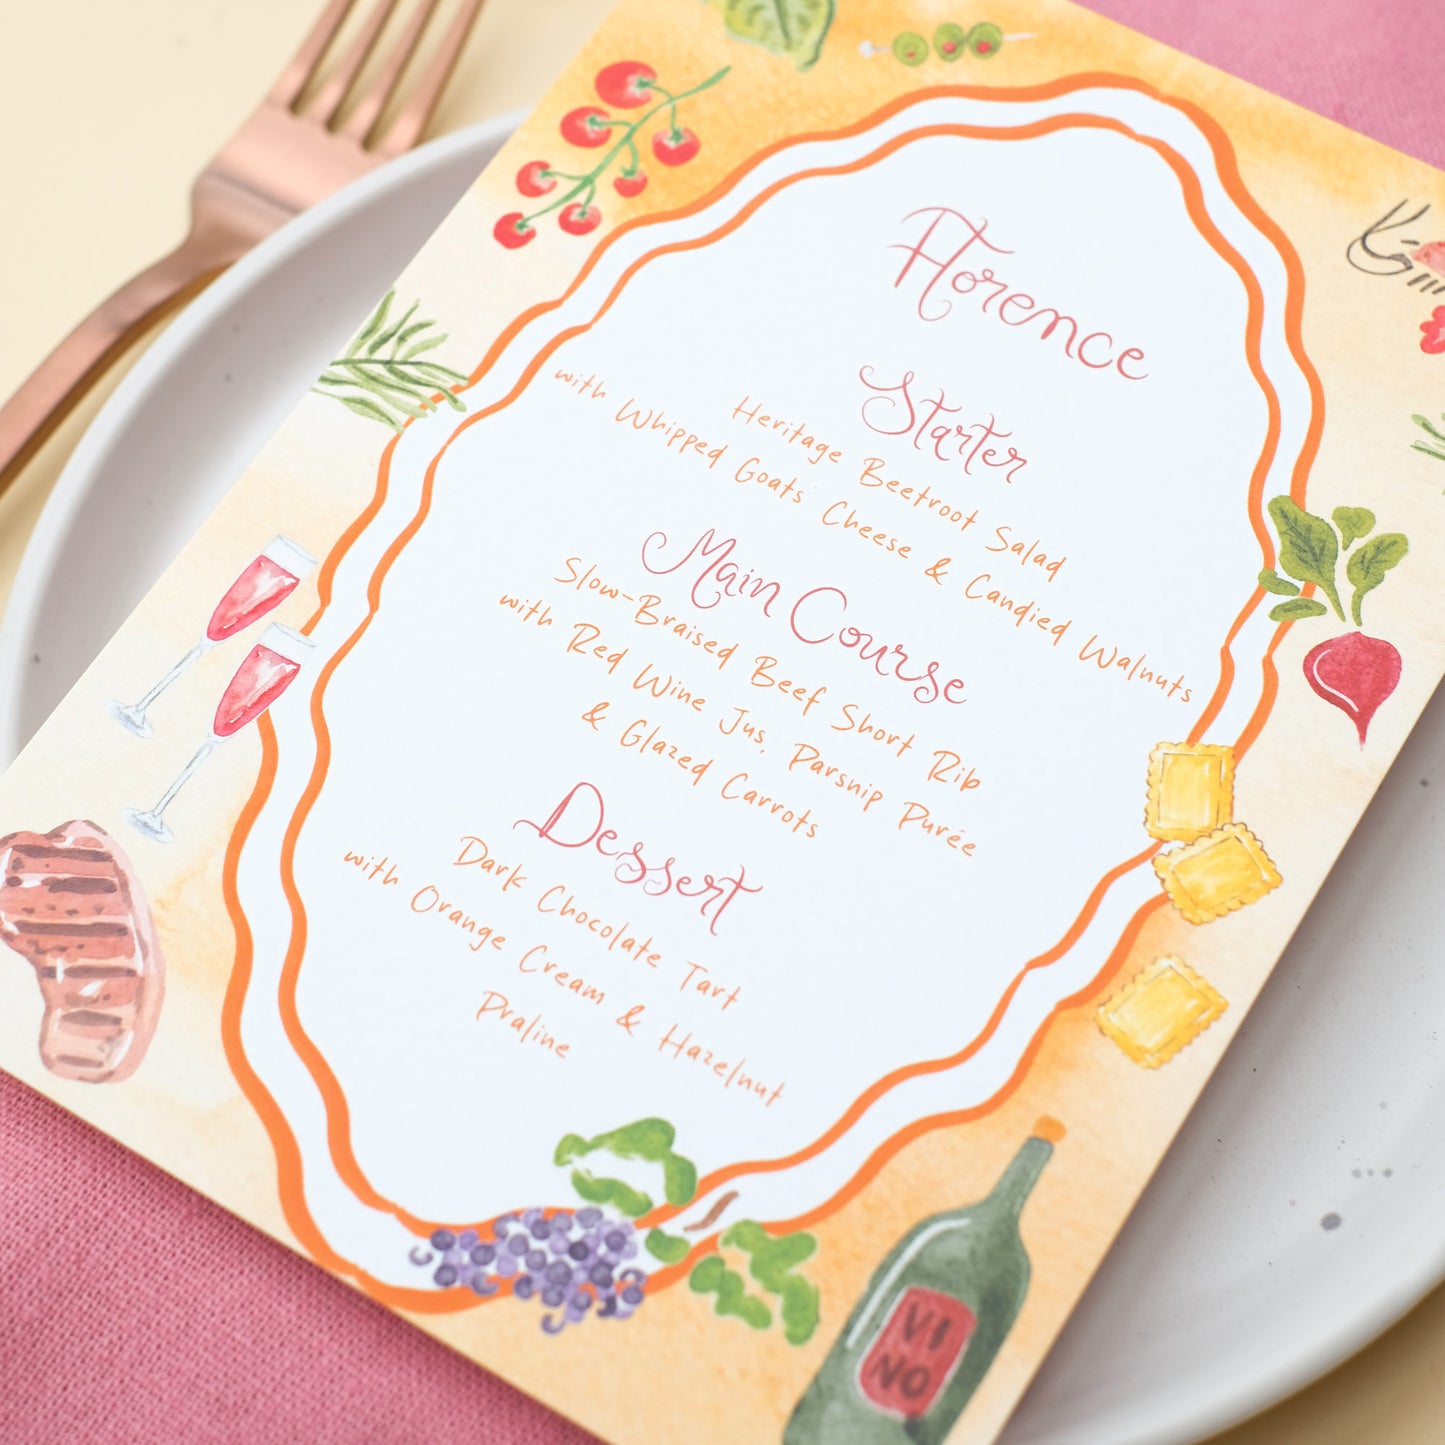 Florence
Starter
Heritage Beetroot Salad
with Whipped Goats' Cheese & Candied Walnuts
Main Course
Slow-Braised Beef Short Rib
with Red Wine Jus, Parsnip Purée
& Glazed Carrots
Dessert
Dark Chocolate Tart
with Orange Cream & Hazelnut
Praline
VI
NO